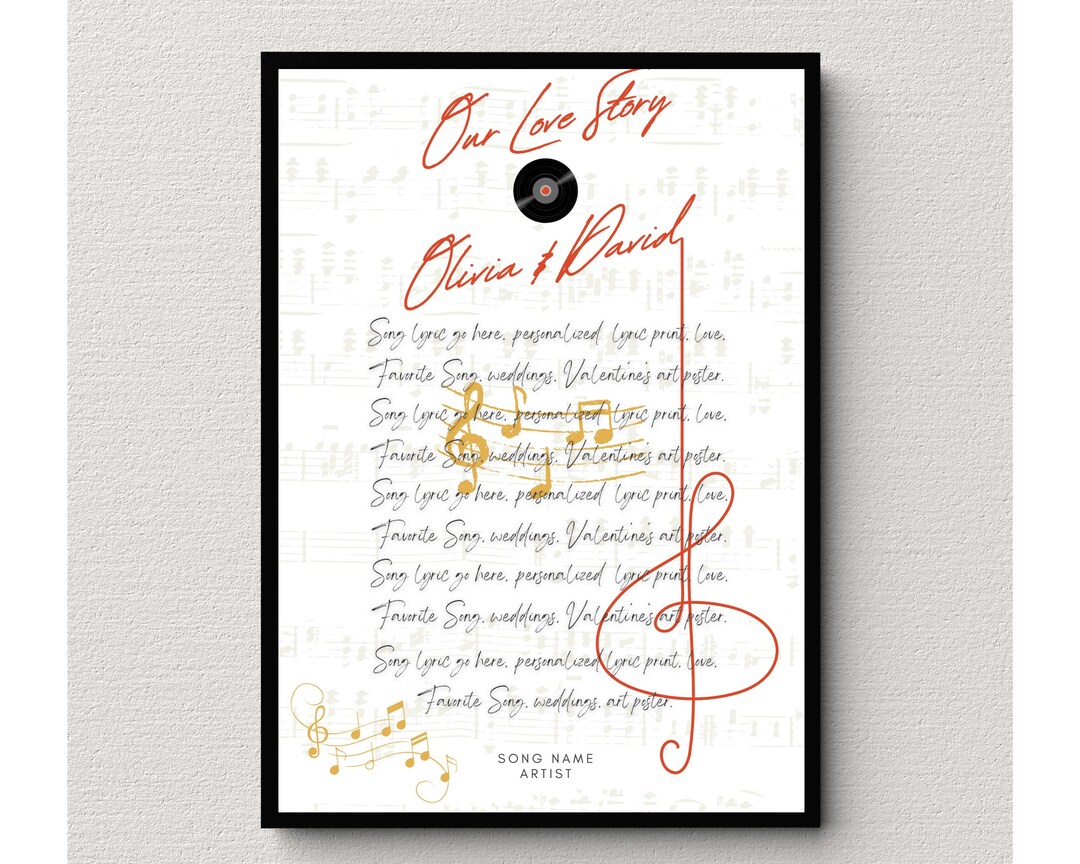 Our Love Story
Olivia & David
Song lyric go here, personalized lyric print, love,
Favorite Song, weddings, Valentine's art poster.
Song lyric go here, personalized lyric print, love,
Favorite Song, weddings, Valentine's art poster.
Song lyric go here, personalized lyric print, love,
Favorite Song, weddings, Valentine's art poster.
Song lyric go here, personalized lyric print, love,
Favorite Song, weddings, Valentine's art poster.
Song lyric go here, personalized lyric print, love,
Favorite Song, weddings, art poster.
SONG NAME
ARTIST